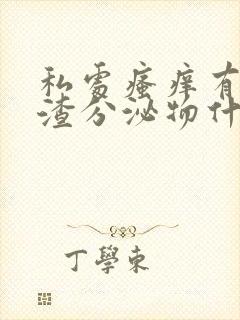 私處瘙痒有
渣分泌物什
丁學東